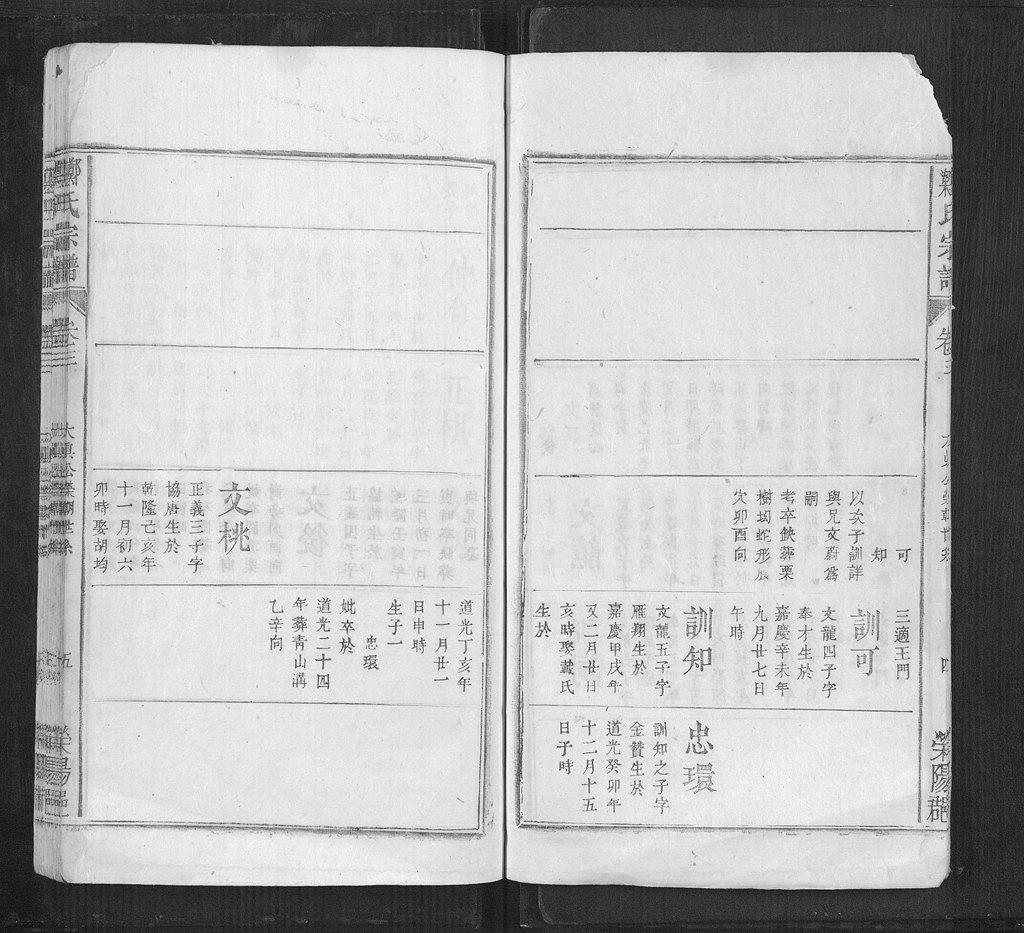 鄭氏宗譜
卷三
四
滎陽郡
可
知
以次子訓詳
與兄文蔚爲
嗣
考卒俠葬栗
樹坳蛇形辰
穴卯酉向
三適王門
訓可
文龍四子字
奉才生於
嘉慶辛未年
九月廿七日
午時
訓知
文龍五子字
雁翔生於
嘉慶甲戌年
又二月廿日
亥時娶戴氏
生於
忠環
訓知之子字
金贊生於
道光癸卯年
十二月十五
日子時
文桃
正義三子字
協唐生於
乾隆己亥年
十一月初六
卯時娶胡均
道光丁亥年
十一月廿一
日申時
生子一
忠環
妣卒於
道光二十四
年葬靑山溝
乙辛向
鄭氏宗譜
卷三
五
滎陽郡